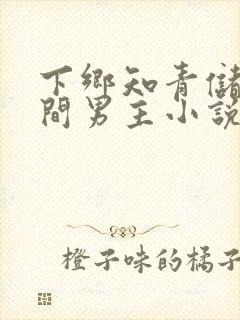 下鄉知青儲
間男主小說
橙子味的橘子